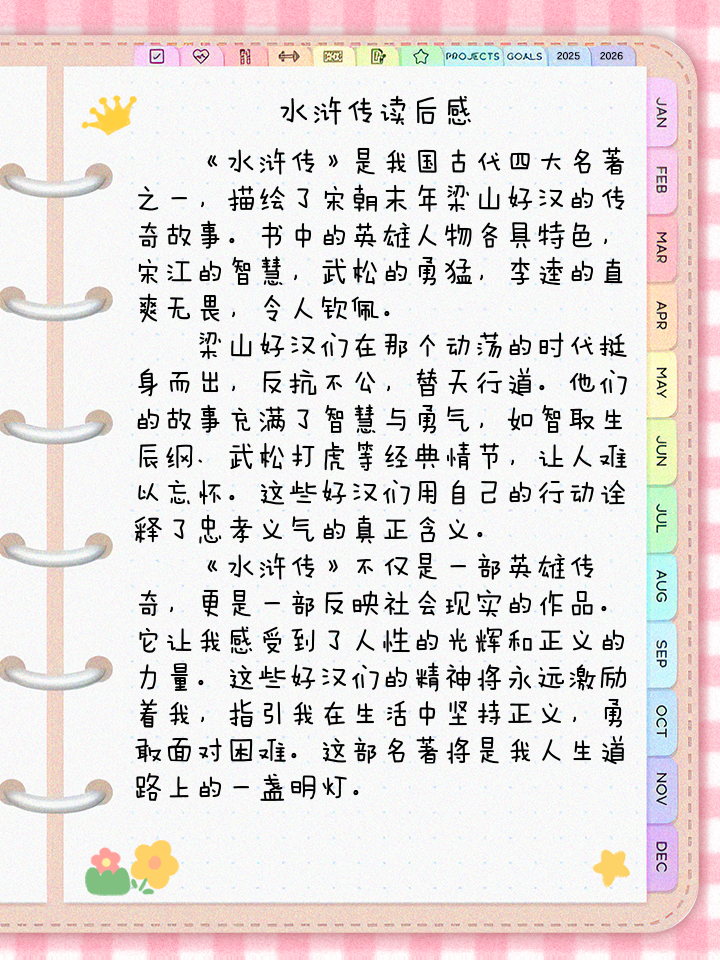 PROJECTS GOALS 2025 2026
水浒传读后感
《水浒传》是我国古代四大名著
之一，描绘了宋朝末年梁山好汉的传
奇故事。书中的英雄人物各具特色，
宋江的智慧，武松的勇猛，李逵的直
爽无畏，令人钦佩。
梁山好汉们在那个动荡的时代挺
身而出，反抗不公，替天行道。他们
的故事充满了智慧与勇气，如智取生
辰纲、武松打虎等经典情节，让人难
以忘怀。这些好汉们用自己的行动诠
释了忠孝义气的真正含义。
《水浒传》不仅是一部英雄传
奇，更是一部反映社会现实的作品。
它让我感受到了人性的光辉和正义的
力量。这些好汉们的精神将永远激励
着我，指引我在生活中坚持正义，勇
敢面对困难。这部名著将是我人生道
路上的一盏明灯。
JAN
FEB
MAR
APR
MAY
JUN
JUL
AUG
SEP
OCT
NOV
DEC